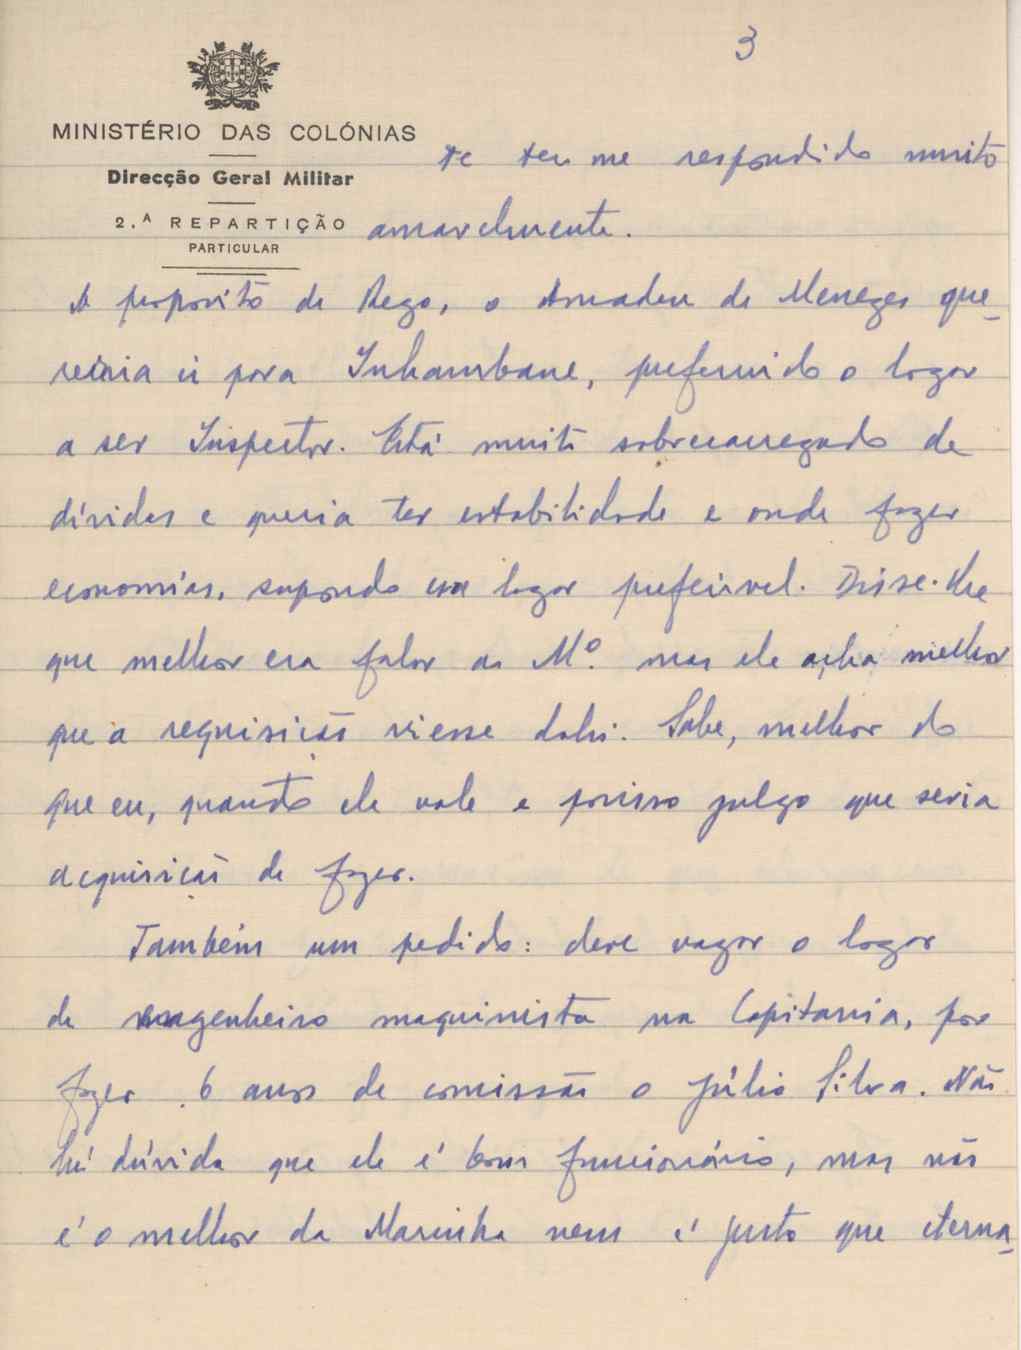 3
MINISTÉRIO DAS COLÓNIAS
Direcção Geral Militar
2.ª REPARTIÇÃO
PARTICULAR
te ter me respondido muito
amavelmente.
A proposito de Rego, o Amadeu de Menezes que-
reria ir para Inhambane, preferindo o logar
a ser Inspector. Está muito sobrecarregado de
dívidas e queria ter estabilidade e onde fazer
economias, supondo esse logar preferivel. Disse-lhe
que melhor era falar ao Mº. mas ele acha melhor
que a requisição viesse dahi. Sabe, melhor do
que eu, quanto ele vale e porisso julgo que seria
acquisição de fazer.
Também um pedido: deve vagar o logar
de engenheiro maquinista na Capitania, por
fazer 6 anos de comissão o Júlio Silva. Não
há dúvida que ele é bom funcionário, mas não
é o melhor da Marinha nem é justo que eterna-